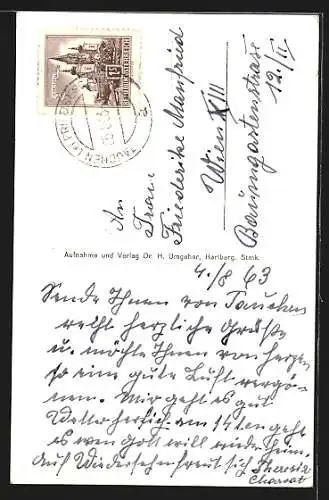 REPUBLIK ÖSTERREICH
TAUCHEN
An
Frau
Friederike Manfried
Wien XIII
Baumgartenstraße
12/II
Aufnahme und Verlag Dr. H. Umgeher, Hartberg, Stmk.
4./8 63
Sende Ihnen von Tauchen
recht herzliche Grüße
u. möchte Ihnen von herzen
so eine gute Luft vergö-
nnen. Mir geht es gut
Wetter herlich am 14ten geht
es wen Gott will wieder heim.
Auf Wiedersehn freut sich Theresia